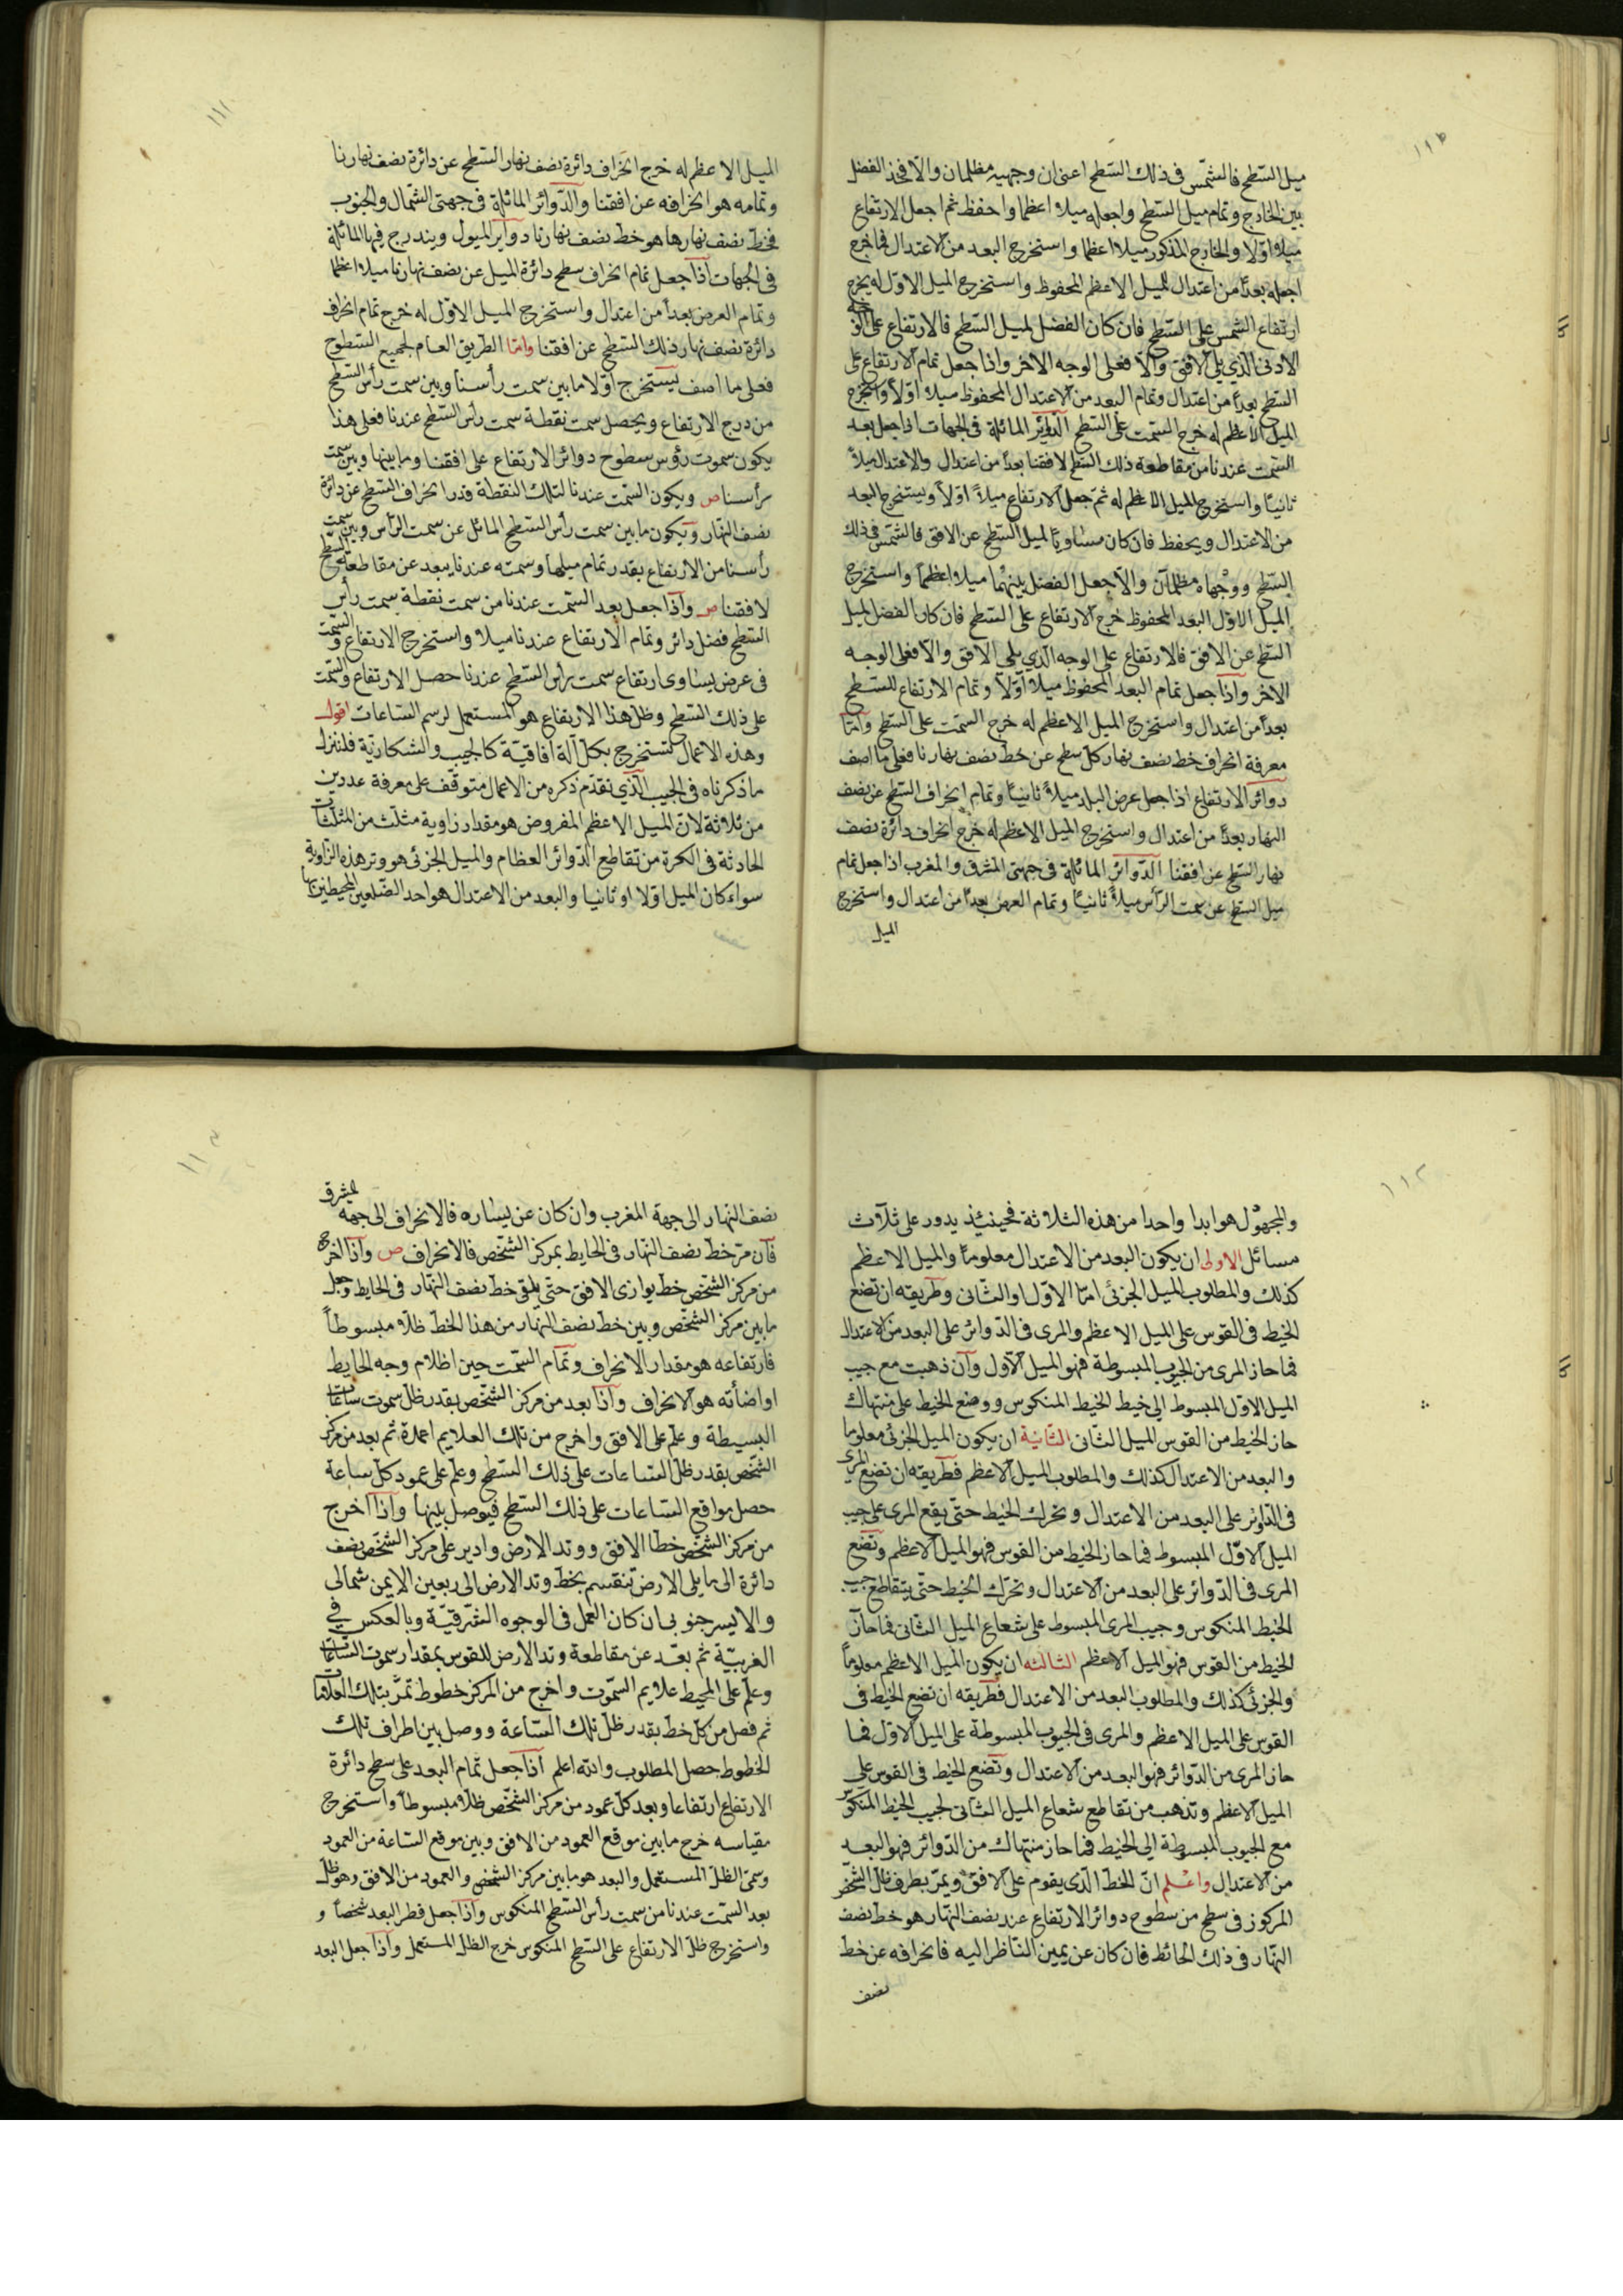 ميل السّطح فالشّمس فى ذلك السّطح اعنى ان وجهيه مظلمان والّا فخذ الفضل
بين الخارج وتمام ميل السّطح واجعله ميلا اعظما واحفظ ثم اجعل الارتفاع
ميلا اوّلا والخارج المذكور ميلا اعظما واستخرج البعد من الاعتدال فما خرج
اجعله بعدًا من اعتدال للميل الاعظم المحفوظ واستخرج الميل الاوّل له يخرج
ارتفاع الشمس على السّطح فان كان الفضل لميل السّطح فالارتفاع على الوجه
الادنى الّذي يلى الافق والّا فعلى الوجه الاخر واذا جعل تمام الارتفاع على
السّطح بعدًا من اعتدال وتمام البعد من الاعتدال المحفوظ ميلا اوّلا واستخرج
الميل الاعظم له خرج السّمت على السّطح الدّوائر المائلة فى الجهات اذا جعل بعد
السّمت عندنا من مقاطعة ذلك السّطح لافقنا بعدًا من اعتدال والاعتدال ميلاً
ثانيًا واستخرج الميل الاعظم له ثمّ جعل الارتفاع ميلاً اوّلاً ويستخرج البعد
من الاعتدال ويحفظ فان كان مساويًا لميل السّطح عن الافق فالشّمس فى ذلك
السّطح ووجهاه مظلمان والّا جعل الفضل بينهما ميلا اعظمًا واستخرج
الميل الاوّل البعد المحفوظ خرج الارتفاع على السّطح فان كان الفضل لميل
السّطح عن الافق فالارتفاع على الوجه الّذي يلي الافق والّا فعلى الوجه
الاخر واذا جعل تمام البعد المحفوظ ميلا اوّلاً وتمام الارتفاع للسّطح
بعدًا من اعتدال واستخرج الميل الاعظم له خرج السّمت على السّطح وامّا
معرفة انحراف خط نصف نهار كلّ سطح عن خط نصف نهارنا فعلى ما اصف
دوائر الارتفاع اذا جعل عرض البلد ميلاً ثانيًا وتمام انحراف السّطح عن نصف
النهار بعدًا من اعتدال واستخرج الميل الاعظم له خرج انحراف دائرة نصف
نهار السّطح عن افقنا الدّوائر المائلة فى جهتى المشرق والمغرب اذا جعل تمام
ميل السّطح عن سمت الرّأس ميلاً ثانيًا وتمام العرض بعدًا من اعتدال واستخرج
الميل
١١١
الميل الاعظم له خرج انحراف دائرة نصف نهار السّطح عن دائرة نصف نهارنا
وتمامه هو انحرافه عن افقنا والدّوائر المائلة فى جهتى الشّمال والجنوب
فخطّ نصف نهارها هو خط نصف نهارنا دوائر الميول ويندرج فيها المائلة
فى الجهات اذا جعل تمام انحراف سطح دائرة الميل عن نصف نهارنا ميلا اعظما
وتمام العرض بعدًا من اعتدال واستخرج الميل الاوّل له خرج تمام انحراف
دائرة نصف نهار ذلك السّطح عن افقنا وامّا الطريق العام لجميع السّطوح
فعلى ما اصف يستخرج اوّلا ما بين سمت رأسنا وبين سمت رأس السّطح
من درج الارتفاع ويحصل سمت نقطة سمت رأس السّطح عندنا فعلى هذا
يكون سموت رؤس سطوح دوائر الارتفاع على افقنا وما بينها وبين سمت
رأسنا ص ويكون السّمت عندنا لتلك النقطة قدر انحراف السّطح عن دائرة
نصف النّهار ويكون ما بين سمت رأس السّطح المائل عن سمت الرّأس وبين سمت
رأسنا من الارتفاع بقدر تمام ميلها وسمته عندنا يبعد عن مقاطعة السّطح
لافقنا ص واذا جعل بعد السّمت عندنا من سمت نقطة سمت رأس
السّطح فضل دائر وتمام الارتفاع عندنا ميلا واستخرج الارتفاع والسّمت
فى عرض يساوى ارتفاع سمت رأس السّطح عندنا حصل الارتفاع والسّمت
على ذلك السّطح وظلّ هذا الارتفاع هو المستعمل لرسم السّاعات اقول
وهذه الاعمال تستخرج بكلّ آلة افاقيّة كالجيب والشكاريّة فلننزل
ما ذكرناه فى الجيب الّذي تقدّم ذكره من الاعمال متوقّف على معرفة عددين
من ثلاثة لانّ الميل الاعظم المفروض هو مقدار زاوية مثلّث من المثلّثات
الحادثة فى الكرة من تقاطع الدّوائر العظام والميل الجزئى هو وتر هذه الزاوية
سواء كان الميل اوّلا او ثانيا والبعد من الاعتدال هو احد الضّلعين المحيطين بها
١١٢
والمجهول هو ابدا واحدا من هذه الثلاثة فحينئذ يدور على ثلاث
مسائل الاولى ان يكون البعد من الاعتدال معلومًا والميل الاعظم
كذلك والمطلوب الميل الجزئى امّا الاوّل او الثّانى وطريقه ان تضع
الخيط فى القوس على الميل الاعظم والمرى فى الدّوائر على البعد من الاعتدال
فما حاز المرى من الجيوب المبسوطة فهو الميل الاوّل وان ذهبت مع جيب
الميل الاوّل المبسوط الى خيط الخيط المنكوس ووضع الخيط على منتهاك
حاز الخيط من القوس الميل الثّانى الثّانية ان يكون الميل الجزئى معلوما
والبعد من الاعتدال كذلك والمطلوب الميل الاعظم فطريقه ان تضع المرى
فى الدّوائر على البعد من الاعتدال وتحرك الخيط حتّى يقع المرى على جيب
الميل الاوّل المبسوط فما حاز الخيط من القوس فهو الميل الاعظم وتضع
المرى فى الدّوائر على البعد من الاعتدال وتحرّك الخيط حتّى يتقاطع جيب
الخيط المنكوس وجيب المرى المبسوط على شعاع الميل الثّانى فما حاز
الخيط من القوس فهو الميل الاعظم الثالثه ان يكون الميل الاعظم معلومًا
والجزئى كذلك والمطلوب البعد من الاعتدال فطريقه ان تضع الخيط فى
القوس على الميل الاعظم والمرى فى الجيوب المبسوطة على الميل الاوّل فما
حاز المرى من الدّوائر فهو البعد من الاعتدال وتضع الخيط فى القوس على
الميل الاعظم وتذهب من تقاطع شعاع الميل الثّانى لجيب الخيط المنكوس
مع الجيوب المبسوطة الى الخيط فما حاز منتهاك من الدّوائر فهو البعد
من الاعتدال واعلم انّ الخطّ الّذى يقوم على الافق ويمرّ بطرف ظلّ الشخص
المركوز فى سطح من سطوح دوائر الارتفاع عند نصف النّهار هو خط نصف
النّهار فى ذلك الحائط فان كان عن يمين النّاظر اليه فانحرافه عن خط
نصف
نصف النّهار الى جهة المغرب وان كان عن يساره فالانحراف الى جهة المشرق
فان مرّ خطّ نصف النّهار فى الحايط بمركز الشّخص فالانحراف ص واذا اخرج
من مركز الشّخص خط يوازى الافق حتّى يلقى خط نصف النّهار فى الحايط وجعل
ما بين مركز الشّخص وبين خط نصف النّهار من هذا الخطّ ظلّا مبسوطاً
فارتفاعه هو مقدار الانحراف وتمام السّمت حين اظلام وجه الحايط
او اضأته هو الانحراف واذا بعد من مركز الشّخص بقدر ظلّ سموت ساعات
البسيطة وعلّم على الافق واخرج من تلك العلايم اعمدة ثم بعد من مركز
الشّخص بقدر ظلّ السّاعات على ذلك السّطح وعلّم على عمود كلّ ساعة
حصل مواقع السّاعات على ذلك السّطح فيوصل بينها واذا اخرج
من مركز الشّخص خطّا الافق ووتد الارض وادير على مركز الشّخص نصف
دائرة الى ما يلى الارض تنقسم بخطّ وتد الارض الى ربعين الايمن شمالى
والايسر جنوبى ان كان العمل فى الوجوه الشّرقيّة وبالعكس في
الغربيّة ثم بعّد عن مقاطعة وتد الارض للقوس بمقدار سموت السّاعات
وعلّم على المحيط علايم السّموت واخرج من المركز خطوط تمرّ بتلك العلامات
ثم فصل من كلّ خطّ بقدر ظلّ تلك السّاعة ووصل بين اطراف تلك
الخطوط حصل المطلوب والله اعلم اذا جعل تمام البعد على سطح دائرة
الارتفاع ارتفاعا وبعد كلّ عمود من مركز الشّخص ظلّا مبسوطاً واستخرج
مقياسه خرج ما بين موقع العمود من الافق وبين موقع السّاعة من العمود
وسمّى الظلّ المستعمل والبعد هو ما بين مركز الشّخص والعمود من الافق وهو ظلّ
بعد السّمت عندنا من سمت رأس السّطح المنكوس واذا جعل قطر البعد شخصاً و
واستخرج ظلّ الارتفاع على السّطح المنكوس خرج الظلّ المستعمل واذا جعل البعد